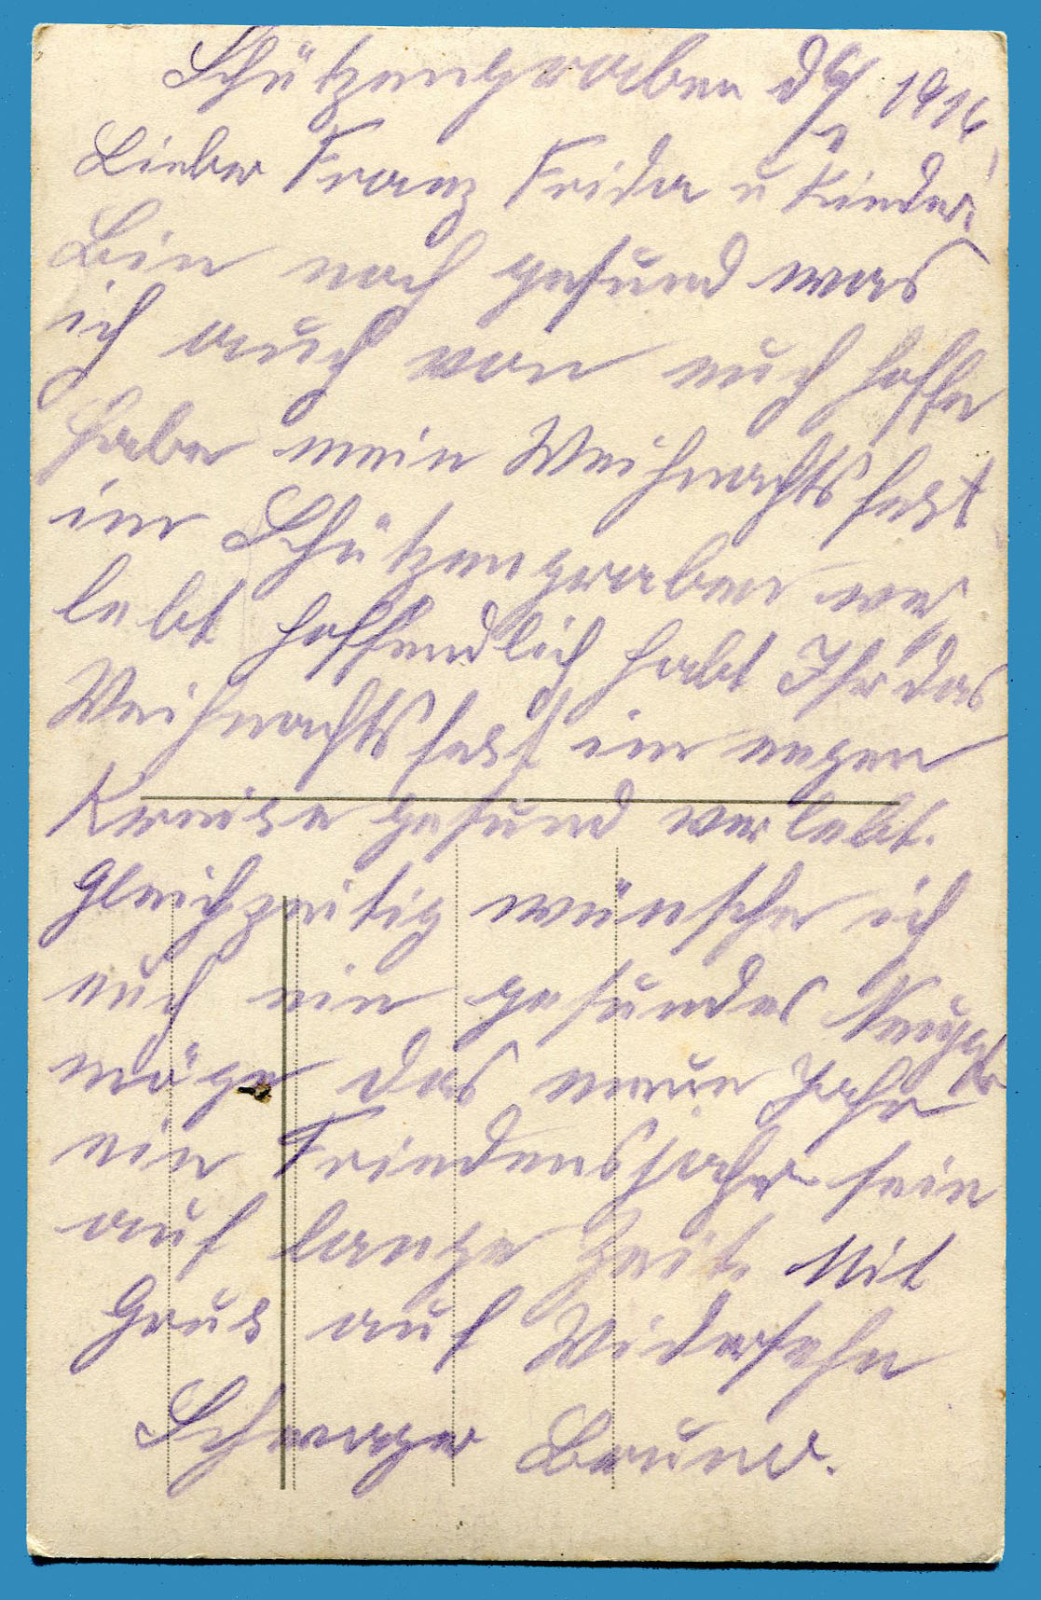 Schützengraben d 6/1 1916
Lieber Franz Frida u Kinder!
Bin noch gesund was
ich auch von euch hoffe
habe mein Weihnachtsfest
im Schützengraben ver
lebt hoffendlich habt Ihr das
Weihnachtsfest im engen
Kreise gesund verlebt.
Gleichzeitig wünsche ich
euch ein gesundes Neujahr
möge das neue Jahr
ein Friedensjahr sein
auf lange Zeit. Mit
Grus auf Widersehn
Schwager Bruno.